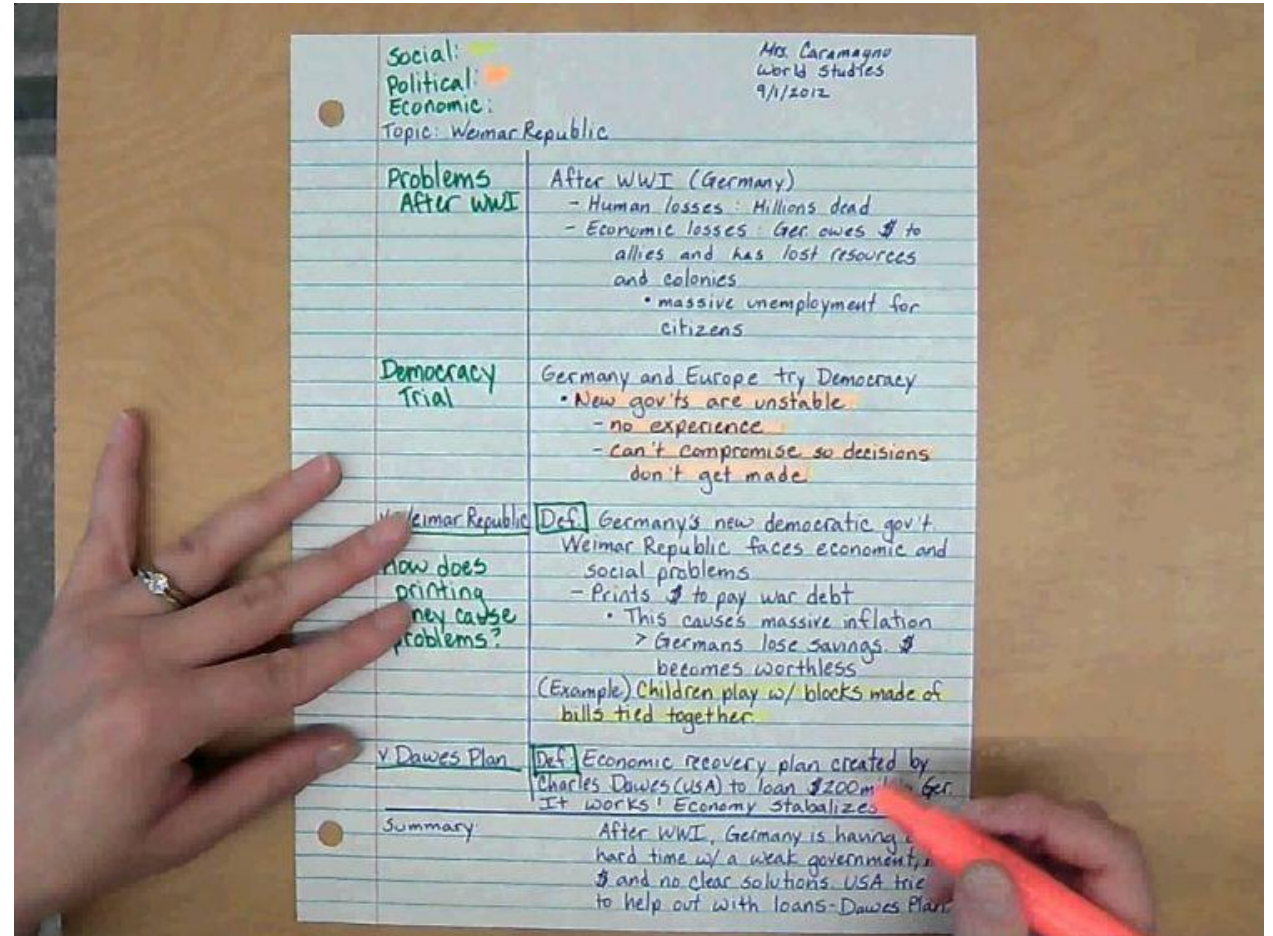 Social:
Political:
Economic:
Mrs. Caramagno
World Studies
9/1/2012
Topic: Weimar Republic
Problems
After WWI
After WWI (Germany)
- Human losses: Millions dead
- Economic losses: Ger. owes $ to
allies and has lost resources
and colonies
• massive unemployment for
citizens
Democracy
Trial
Germany and Europe try Democracy
• New gov'ts are unstable
- no experience
- can't compromise so decisions
don't get made
Weimar Republic
Def. Germany's new democratic gov't.
Weimar Republic faces economic and
social problems
How does
printing
problems?
cause
- Prints $ to pay war debt
• This causes massive inflation
> Germans lose savings. $
becomes worthless
(Example) Children play w/ blocks made of
bills tied together.
v Dawes Plan
Def. Economic recovery plan created by
Charles Dawes (USA) to loan $200 Ger.
It works! Economy stabalizes
Summary
After WWI, Germany is having
hard time w/ a weak government,
$ and no clear solutions. USA
to help out with loans-Dawes Plan.